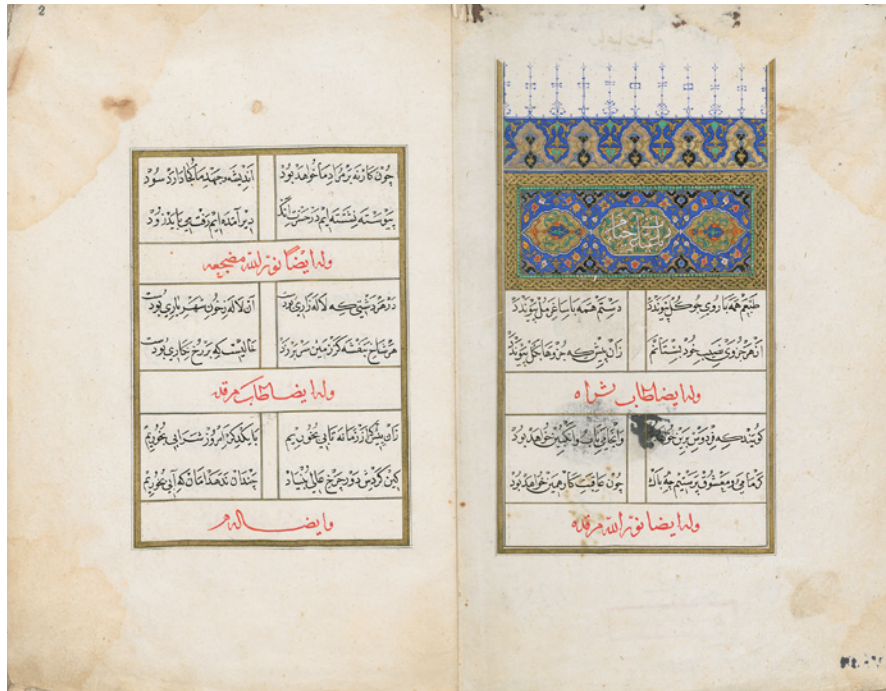 رباعیات عمر خیام
طبعم همه با روی چو گل پیوندد دستم همه با ساغر مل پیوندد
از هر جزوی نصیب خود بستانم زان پیش که جزوها بکل پیوندد
وله ایضا طاب ثراه
گویند که فردوس برین خواهد وانجا می ناب وانگبین خواهد بود
گر ما می و معشوق پرستیم چه باک چون عاقبت کار همین خواهد بود
وله ایضا نور الله مرقده
2
چون کار نه بر مراد ما خواهد بود اندیشه و جهد ما کجا دارد سود
پیوسته نشسته ایم در حسرت آنک دیر آمده ایم رفت می باید زود
وله ایضا نور الله مضجعه
در هر دشتی که لاله زاری بودست آن لاله ز خون شهریاری بودست
هر شاخ بنفشه کز زمین سر بر زد خالیست که بر رخ نگاری بودست
وله ایضا طاب مرقده
زان پیش کز زمانه تابی بخوریم با یکدیگر امروز شرابی بخوریم
کین گردش دور چرخ عالی بنیاد چندان ندهد امان که آبی بخوریم
وایضا له